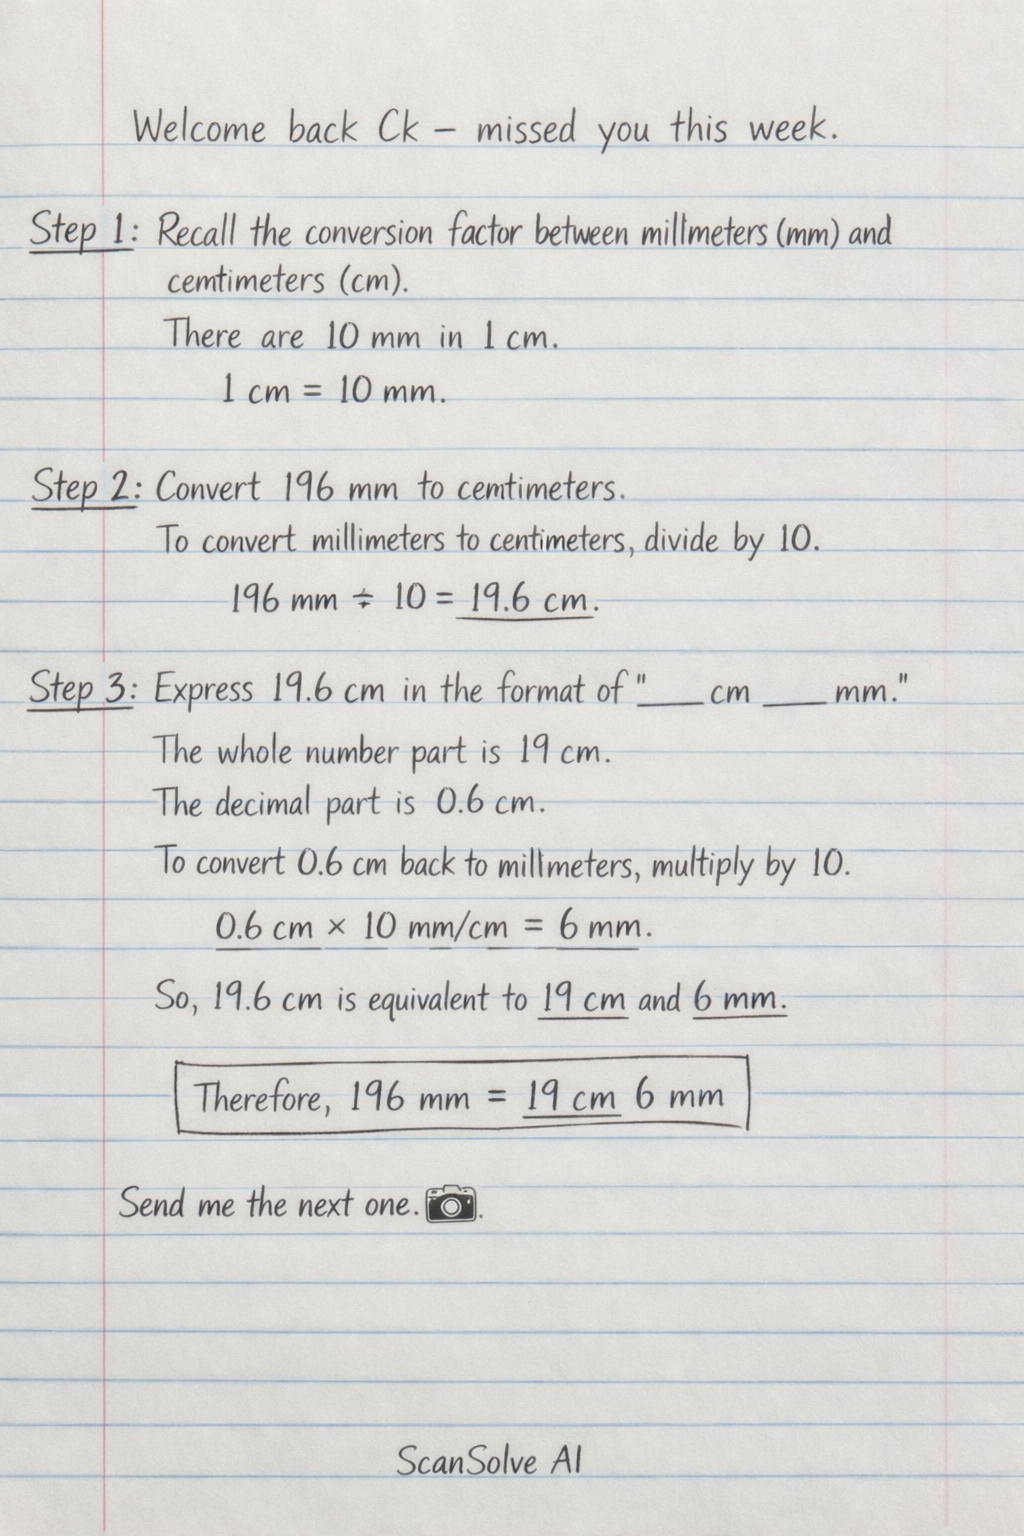 Welcome back Ck – missed you this week.
Step 1: Recall the conversion factor between millmeters (mm) and
cemtimeters (cm).
There are 10 mm in 1 cm.
1 cm = 10 mm.
Step 2: Convert 196 mm to cemtimeters.
To convert millimeters to centimeters, divide by 10.
196 mm ÷ 10 = 19.6 cm.
Step 3: Express 19.6 cm in the format of "___ cm ___ mm."
The whole number part is 19 cm.
The decimal part is 0.6 cm.
To convert 0.6 cm back to millmeters, multiply by 10.
0.6 cm × 10 mm/cm = 6 mm.
So, 19.6 cm is equivalent to 19 cm and 6 mm.
Therefore, 196 mm = 19 cm 6 mm
Send me the next one. 📷.
ScanSolve AI